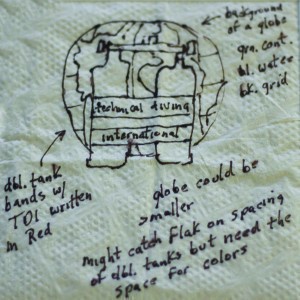 background
of a globe
grn. cont.
bl. water
bk. grids
technical diving
international
dbl. tank
bands w/
TDI written
in Red
globe could be
smaller
might catch flak on spacing
of dbl. tanks but need the
space for colors